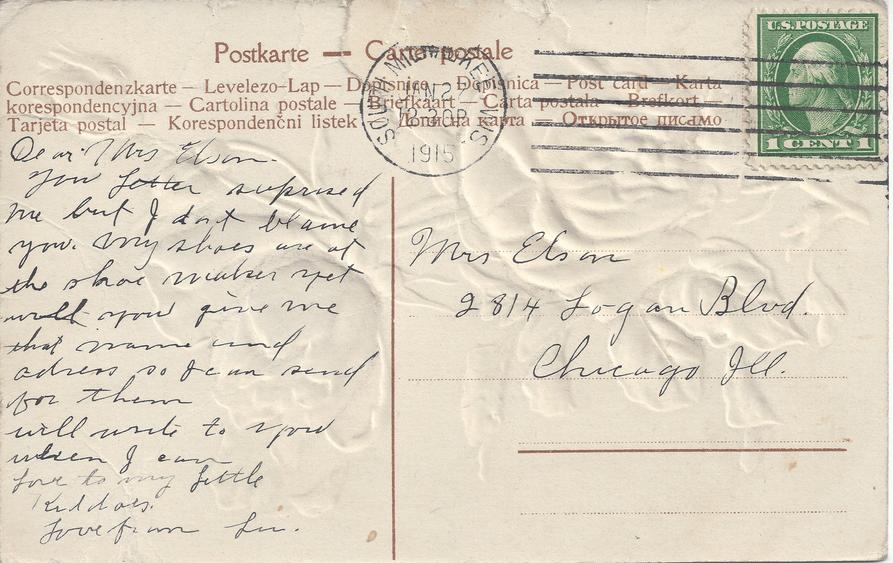 Postkarte — Carte postale
Correspondenzkarte — Levelezo-Lap — Dopisnice — Dopisnica — Post card — Karta
korespondencyjna — Cartolina postale — Briefkaart — Carta postala — Brefkort —
Tarjeta postal — Korespondenční listek — карта — Открытое письмо
SOUTH MILWAUKEE, WIS
JAN 2
12-30P
1915
U.S. POSTAGE
1 CENT 1
Dear Mrs Elson.
You letter suprised
me but I dont blame
you. My shoes are at
the shoe maker yet
will you give me
that name and
adress so I can send
for them
will write to you
when I can
love to my little
Kiddoes.
Love from
Mrs Elson
2814 Logan Blvd.
Chicago Ill.